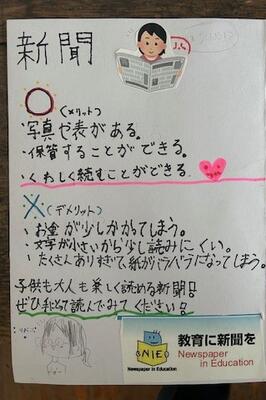 新聞
(メリット)
・写真や表がある。
・保管することができる。
・くわしく読むことができる。
(デメリット)
・お金が少しかかってしまう。
・文字が小さいから少し読みにくい。
・たくさんありすぎて、紙がバラバラになってしまう。
子供も大人も楽しく読める新聞!
ぜひ手にとって読んでみてください!
教育に新聞を
NIE
Newspaper in Education
Newspaper
in Education